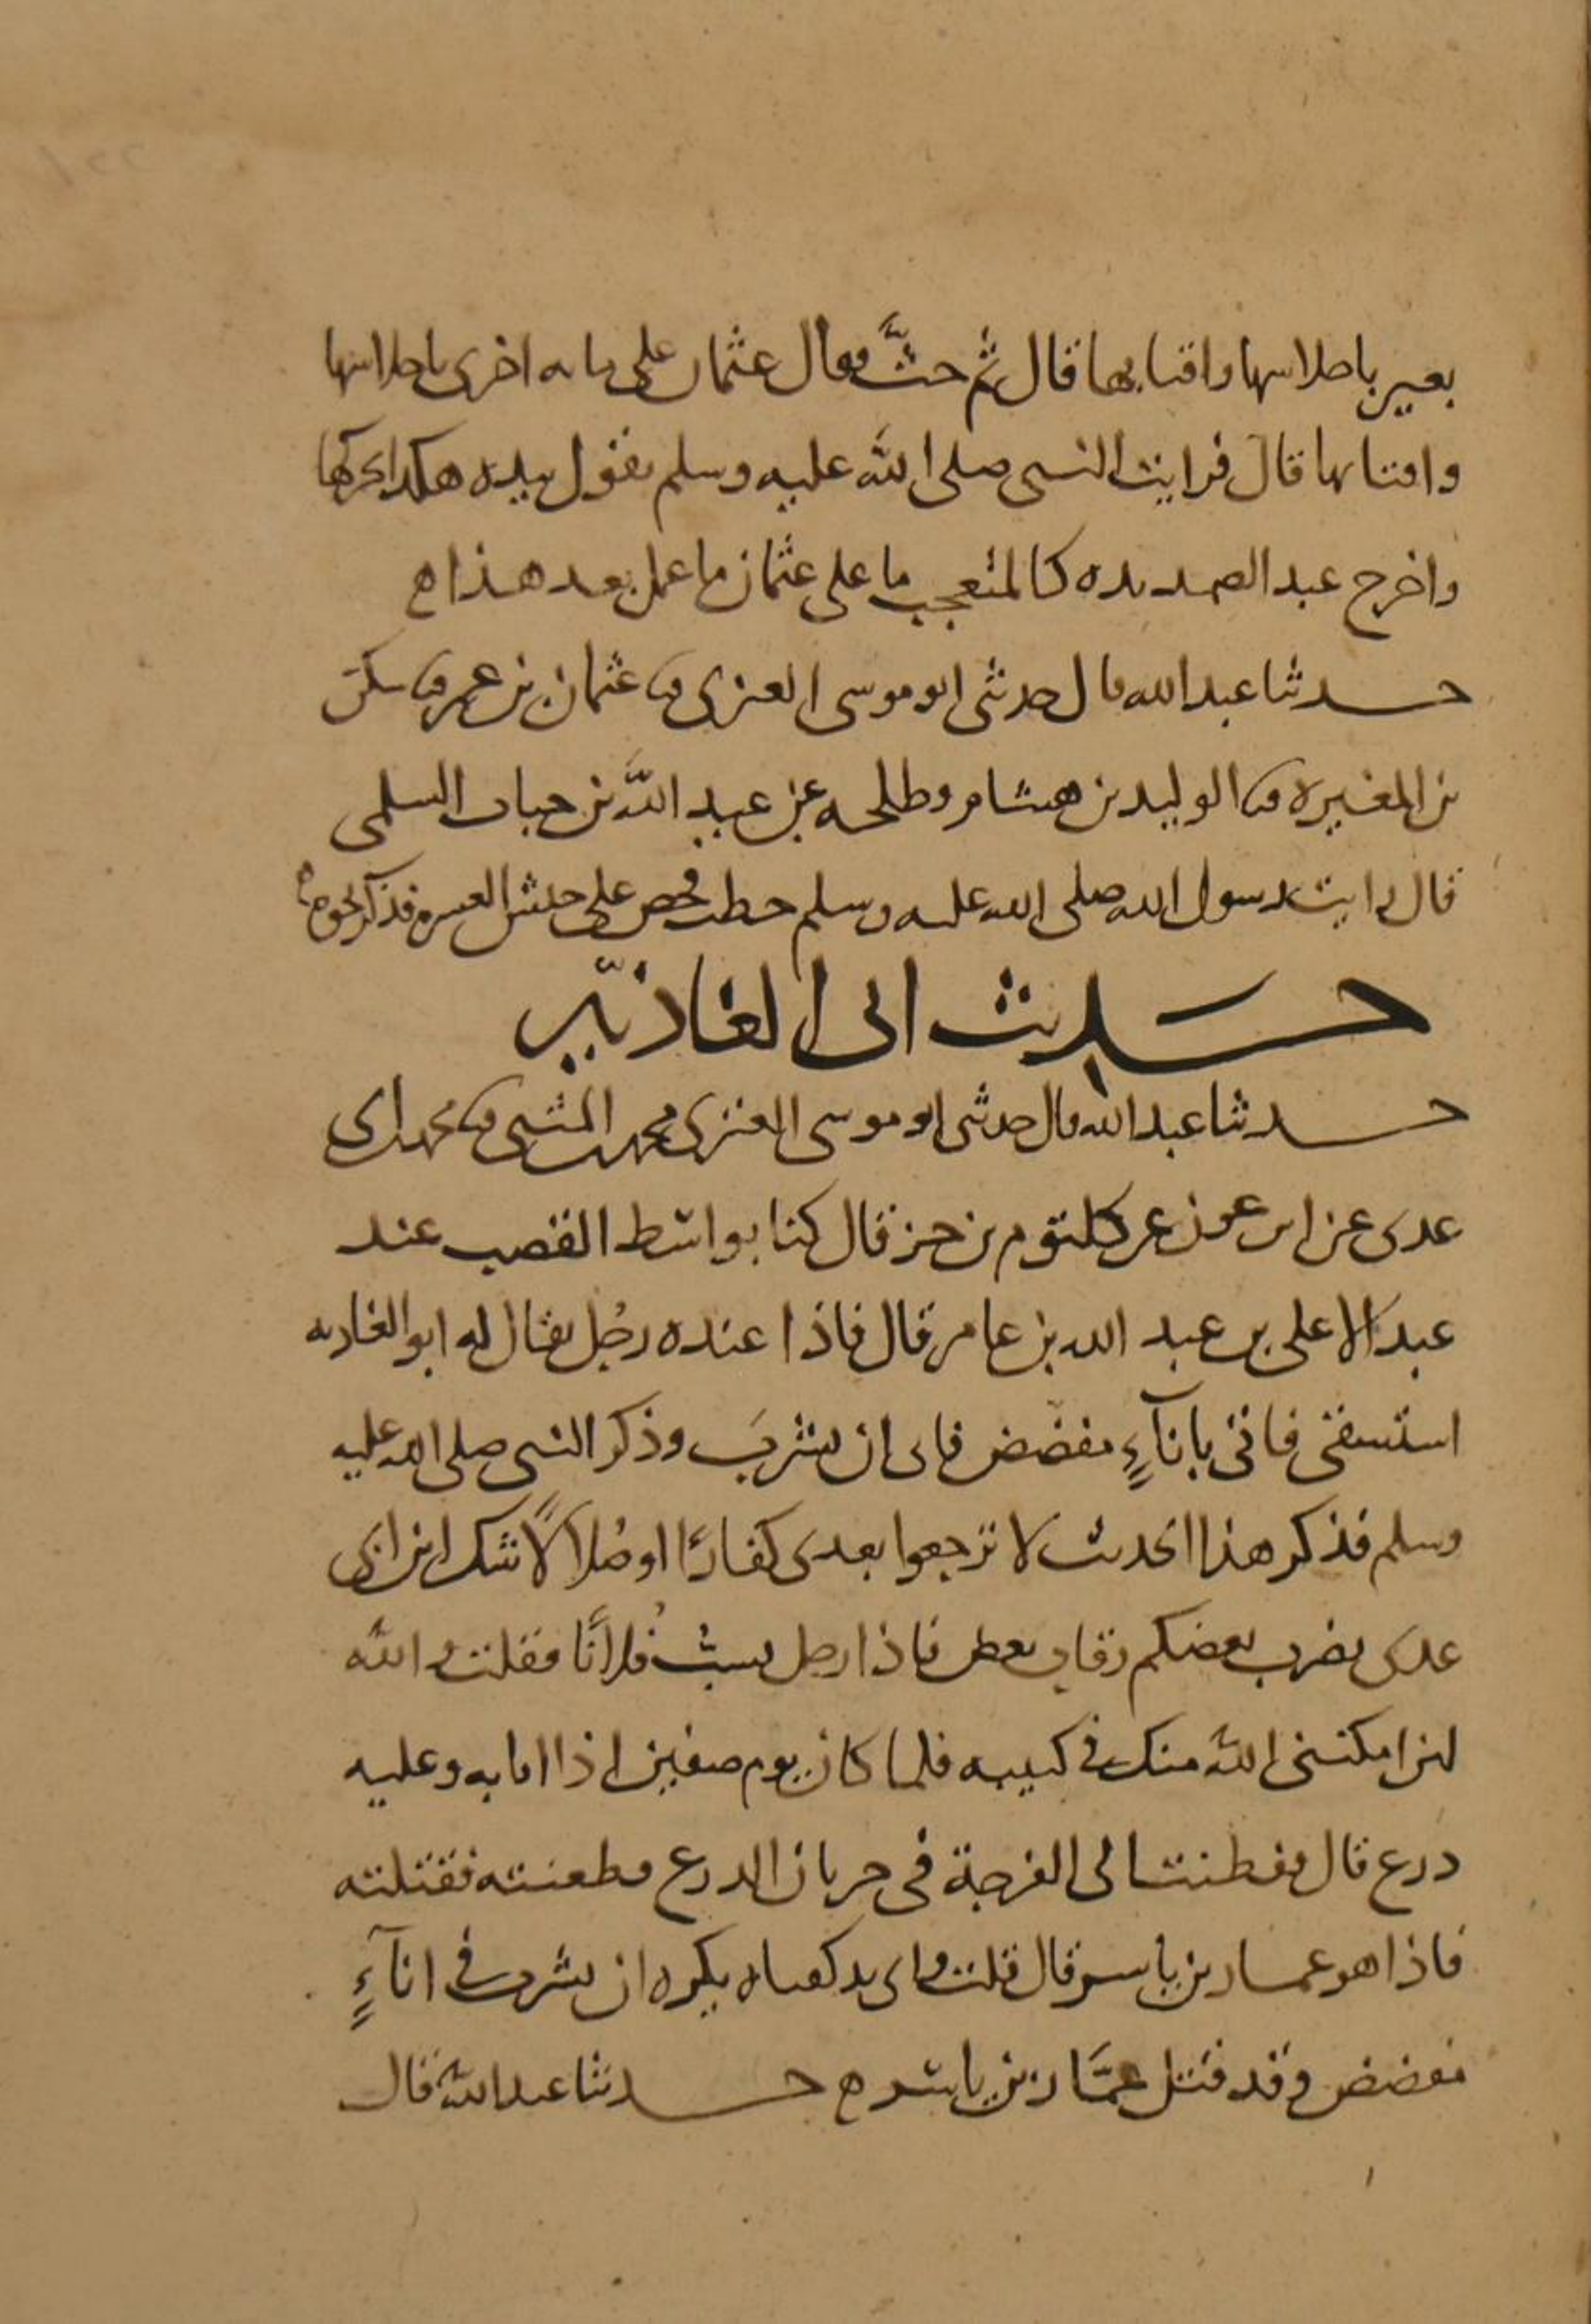 بعير باحلاسها واقتابها قال ثم حثَّ فقال عثمان على مايه اخرى باحلاسها
واقتابها قال فرايت النبي صلى الله عليه وسلم يقول بيده هكذا يحركها
واخرج عبد الصمد يده كالمتعجب ما على عثمان ما عمل بعد هذا ه
حدثنا عبد الله قال حدثني ابو موسى العنزي ثنا عثمان بن عمر ثنا سكن
بن المغيره ثنا الوليد بن هشام وطلحه عن عبد الله بن حباب السلمي
قال رايت رسول الله صلى الله عليه وسلم خطب فحض على جيش العسره فذكر نحوه
حديث ابي الغاديه
حدثنا عبد الله قال حدثني ابو موسى العنزي محمد بن المثنى ثنا محمد بن ابي
عدي عن ابن عون عن كلثوم بن جبر قال كنا بواسط القصب عند
عبد الاعلى بن عبد الله بن عامر قال فاذا عنده رجُل يقال له ابو الغاديه
استسقى فاتى باناءٍ مفضض فابى ان يشربَ وذكر النبي صلى الله عليه
وسلم فذكر هذا الحديث لا ترجعوا بعدي كفارًا او ضُلالًا شك ابن ابي
عدي يضرب بعضكم رقاب بعض فاذا رجل يسبُّ فُلانًا فقلت والله
لئن امكنني الله منك في كتيبه فلما كان يوم صفين اذا انا به وعليه
درع قال ففطنت الى الفرجة في جربان الدرع فطعنته فقتلته
فاذا هو عمار بن ياسر قال قلت واي يد كفتاه يكره ان يشرب في اناءٍ
مفضض وقد قتل عمَّار بن ياسر ه حدثنا عبد الله قال